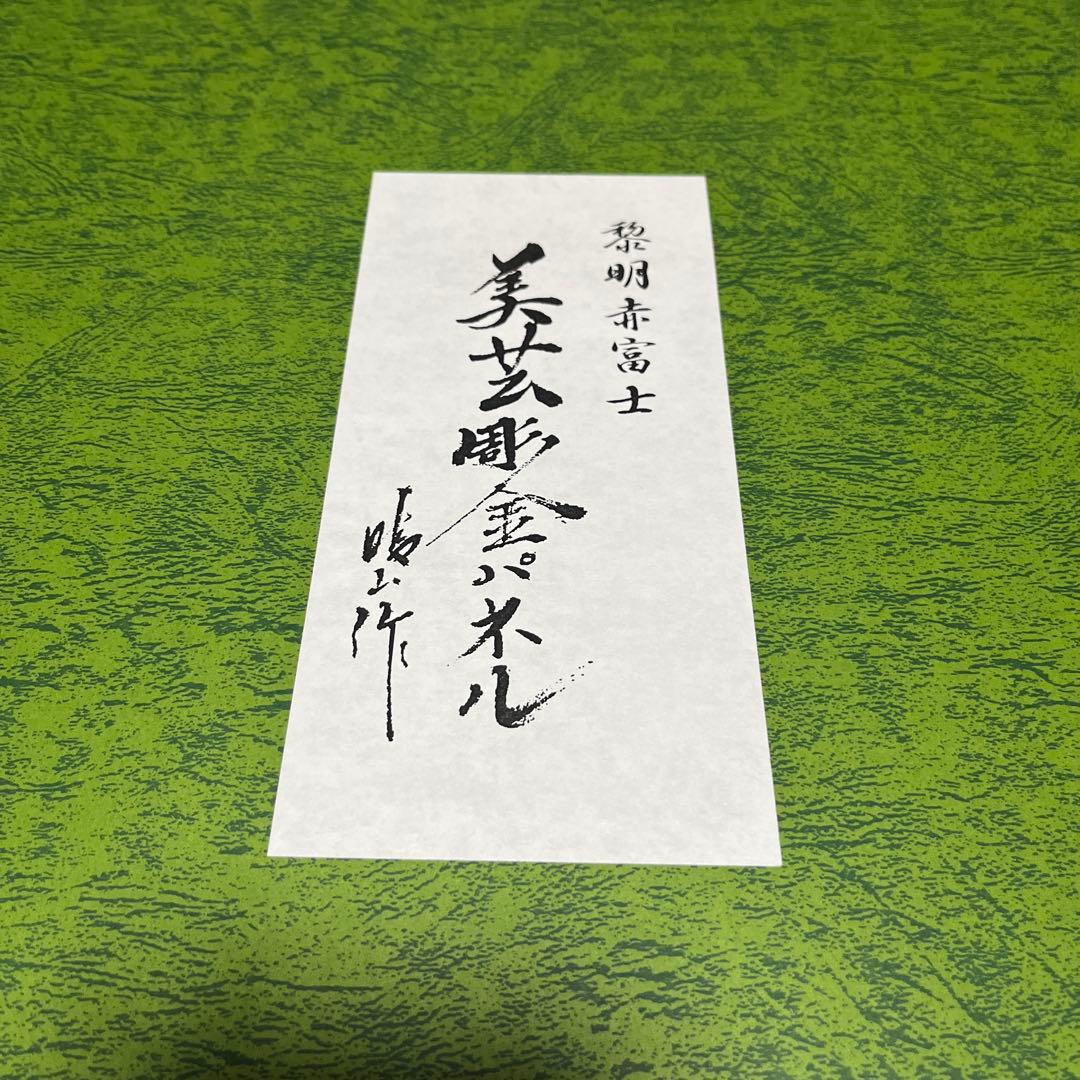 黎明赤富士
美芸彫金パネル
晴山作